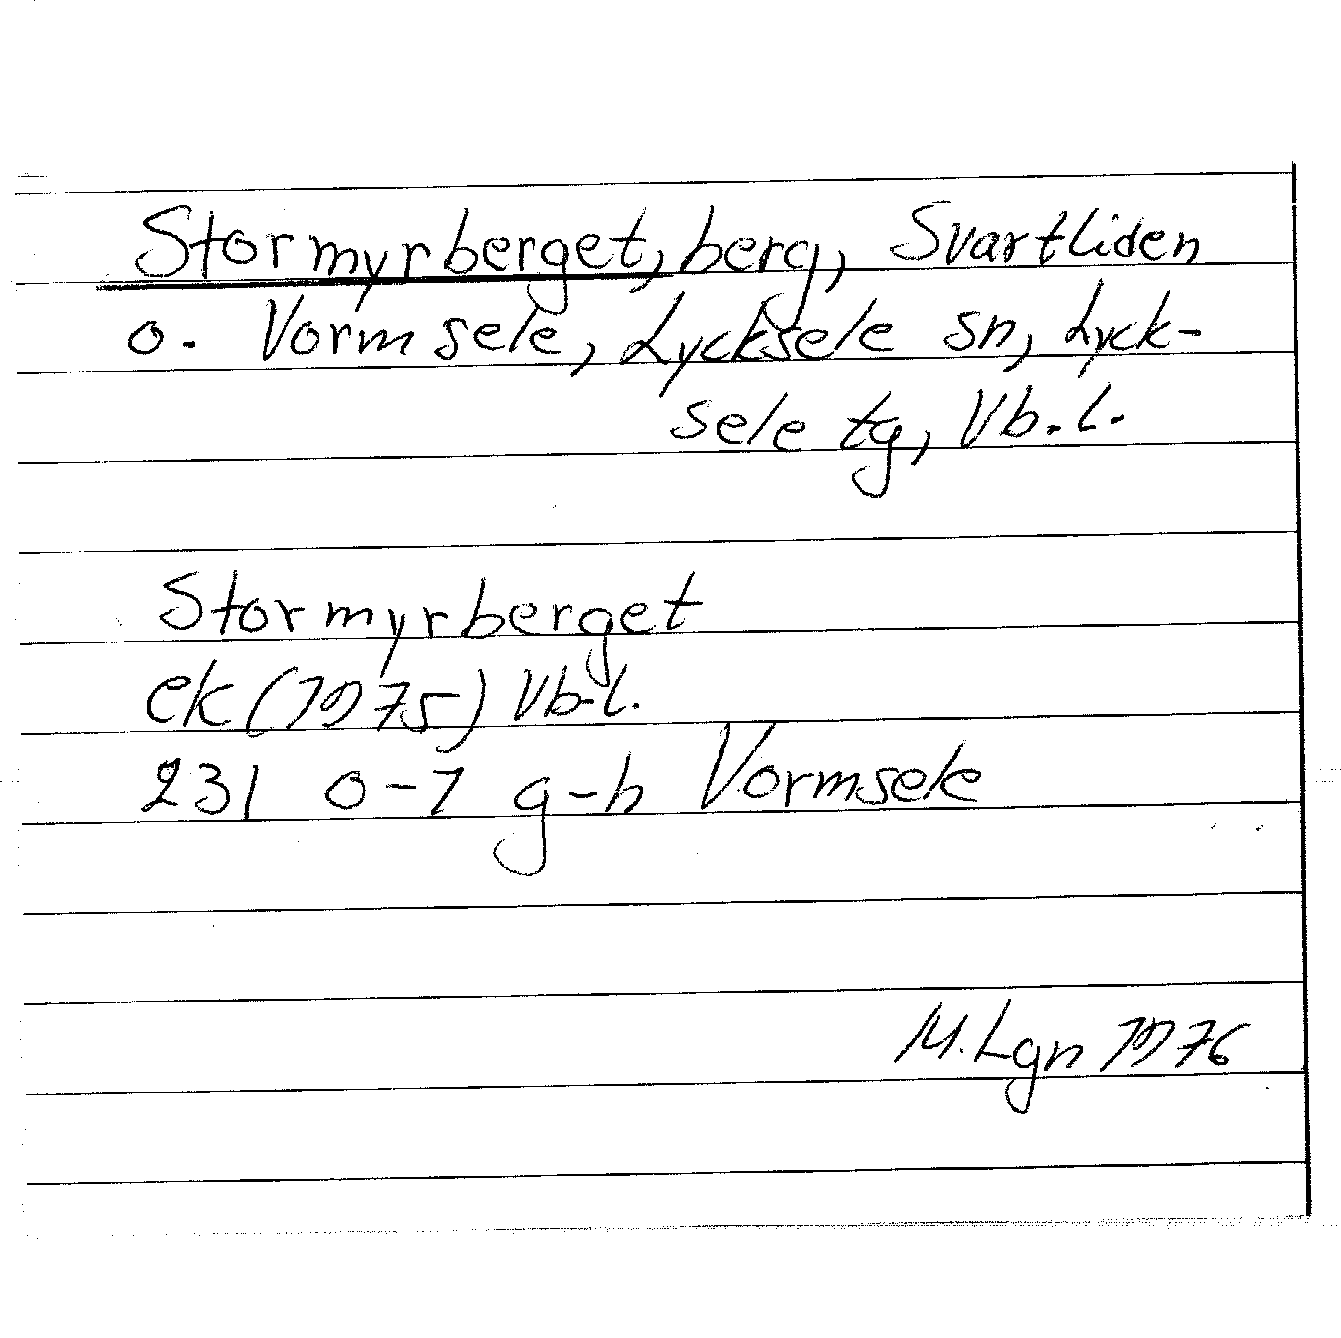 Stormyrberget, berg, Svartliden
o. Vormsele, Lycksele sn, Lyck-
sele tg, Vb.l.
Stormyrberget
ek (1975) Vb.l.
23I 0-1 g-h Vormsele
M.Lgn 1976